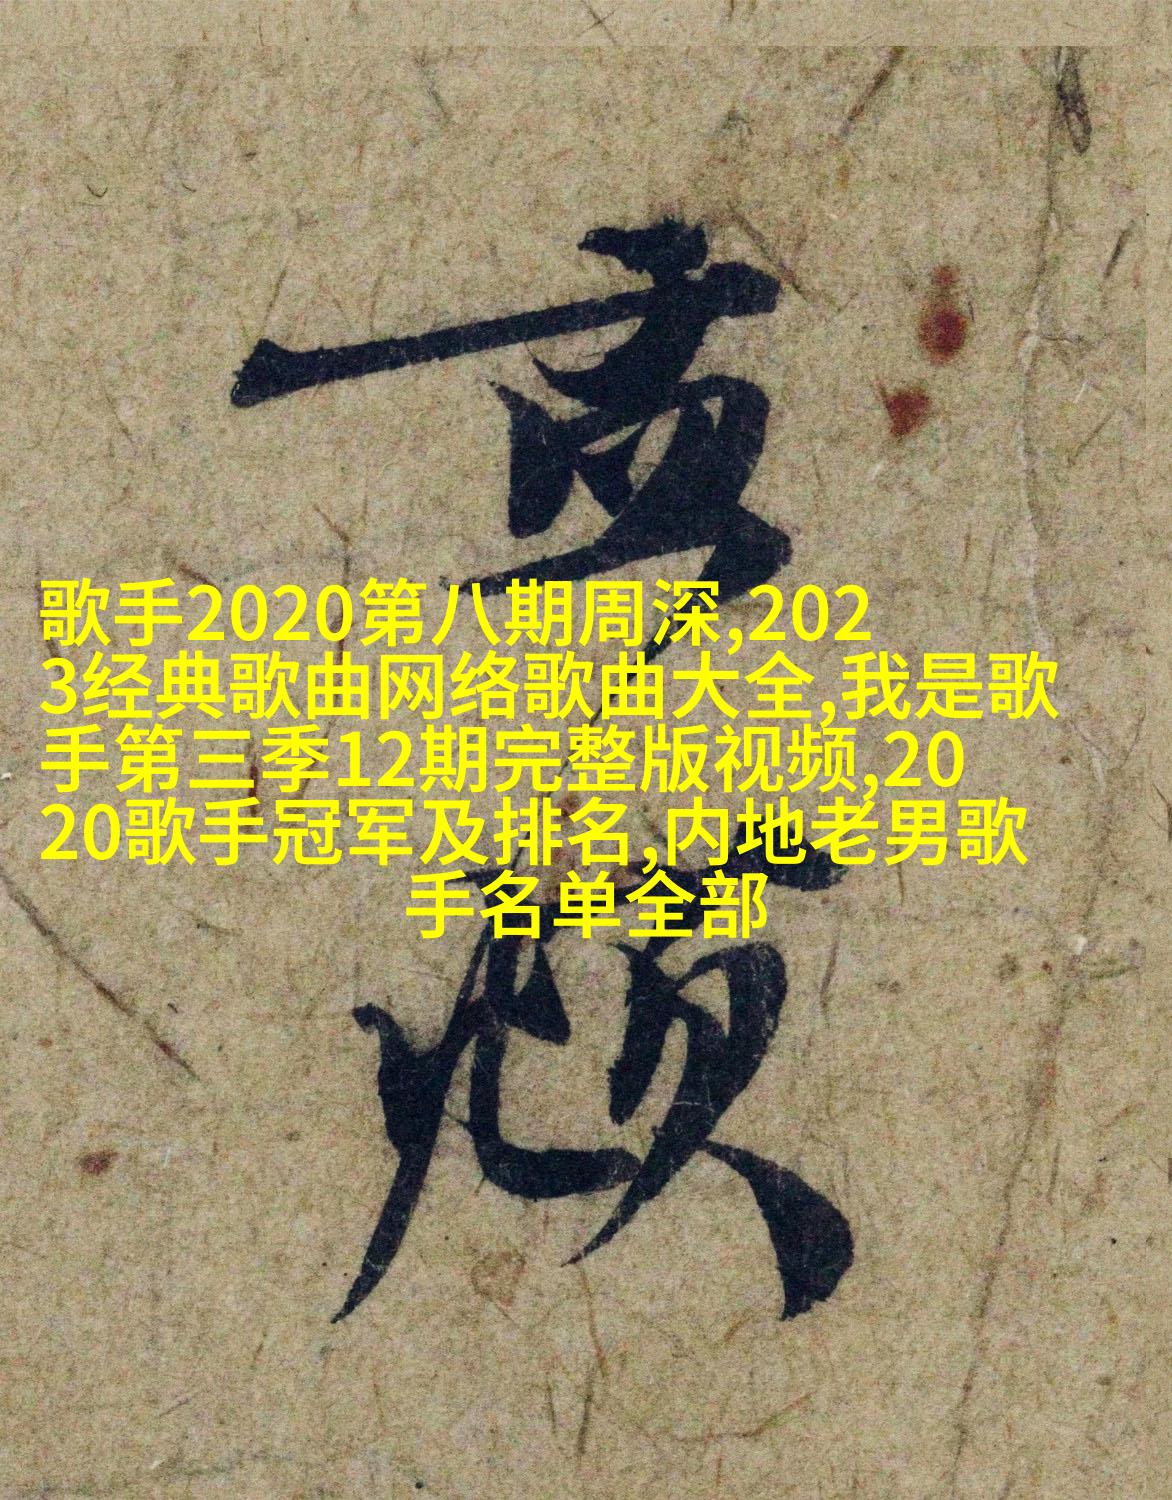 歌手2020第八期周深,202
3经典歌曲网络歌曲大全,我是歌
手第三季12期完整版视频,20
20歌手冠军及排名,内地老男歌
手名单全部